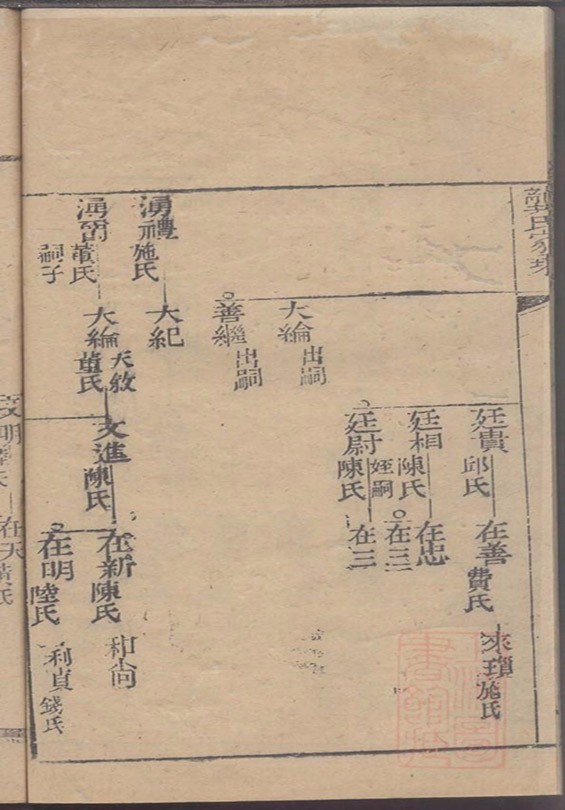 龔氏宗
廷貴
邱氏
在善
費氏
來瓚
施氏
廷相
陳氏
在忠
在三
廷尉
陳氏
姪嗣
在三
大綸
出嗣
善繼
出嗣
湧禮
施氏
大紀
湧爵
黃氏
嗣子
大綸
董氏
天敘
文進
陳氏
在新
陳氏
和尚
在明
陸氏
利貞
錢氏
文明
在天
黃氏